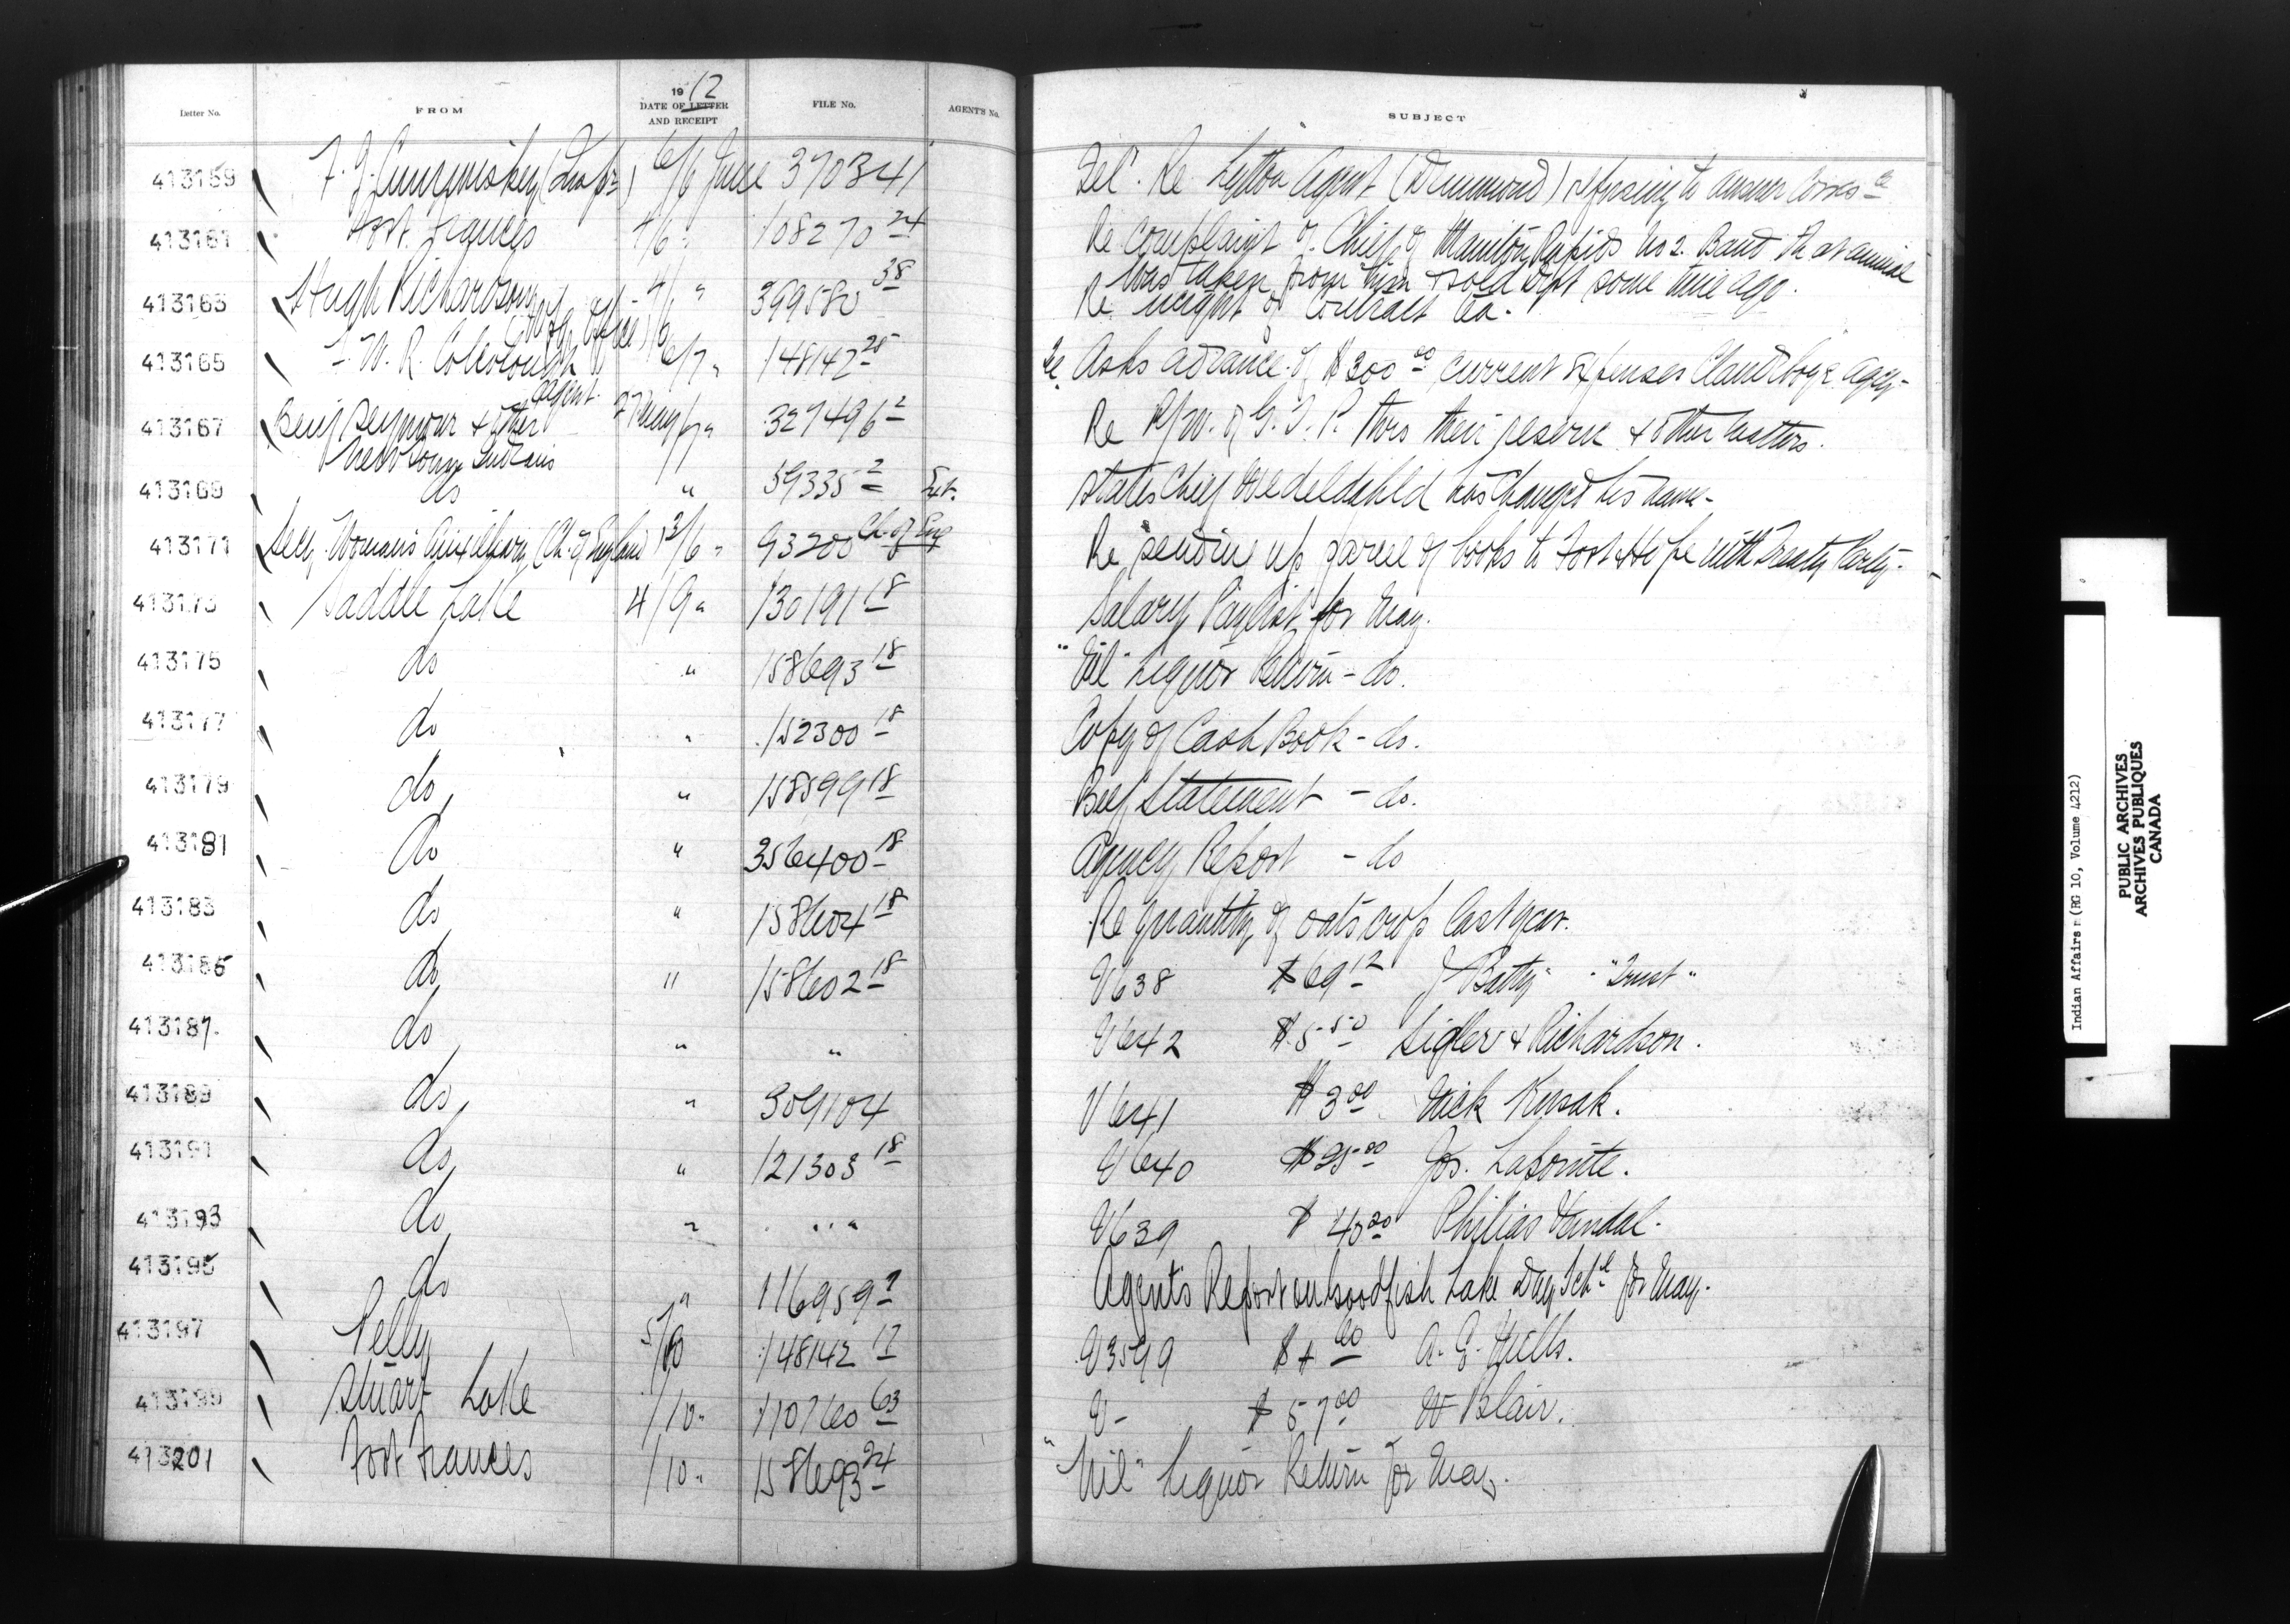 Letter No. FROM 1912 DATE OF LETTER AND RECEIPT FILE No. AGENT'S No. SUBJECT
413159 F. J. Cummiskey (Inspr) 6/6 June 370341 Tel. Re Lytton Agent (Drummond) refusing to answer Corres
413161 Fort Frances 4/6 " 108270 24 Re complaint of Chief of Manitou Rapids No 2. Band that animal
was taken from him & sold some time ago.
413163 Hugh Richardson 4/6 " 399580 38 Re weight of Contract
413165 W. R. Colclough Agent 6/7 " 148142 25 Re Asks advance of $300 00 current expenses Clandeboye Agcy-
413167 Benj Seymour & other 27 May /7 " 327496 2 Re R/W. of G. T. P. thro their reserve & other matters.
Indians
413169 do " 59335 2 States Chief has changed his name-
413171 Secy Woman's Auxiliary (Ch. of England) 3/6 " 93200 Ch. of Eng Re sending up parcel of books to Fort Hope with Treaty Party-
413173 Saddle Lake 4/9 " 130191 18 Salary Paylist for May.
413175 do " 158693 18 "Nil" Liquor Return - do.
413177 do " 152300 18 Copy of Cash Book - do.
413179 do " 158599 18 Beef Statement - do.
413181 do " 356400 18 Agency Report - do
413183 do " 158604 18 Re quantity of oats crop last year.
413185 do " 158602 18 V638 $69 12 J Batty - "Trust"
413187 do " " V642 $5 50 Sigler & Richardson.
413189 do " 309104 V641 $3 00 Nick Kusak.
413191 do " 121303 18 V640 $25 00 Jos. Lapointe.
413193 do " " V639 $ Philias
413195 do " 116959 Agent's Report on Goodfish Lake Day Schl for May.
413197 Pelly 5/10 148142 17 V3599 $4 60 A. G. Wells.
413199 Stuart Lake /10 " 110760 63 V- $57 00 W Blair.
413201 Fort Frances /10 " 158693 24 "Nil" Liquor Return for May.
Indian Affairs (RG 10, Volume 4212)
PUBLIC ARCHIVES
ARCHIVES PUBLIQUES
CANADA